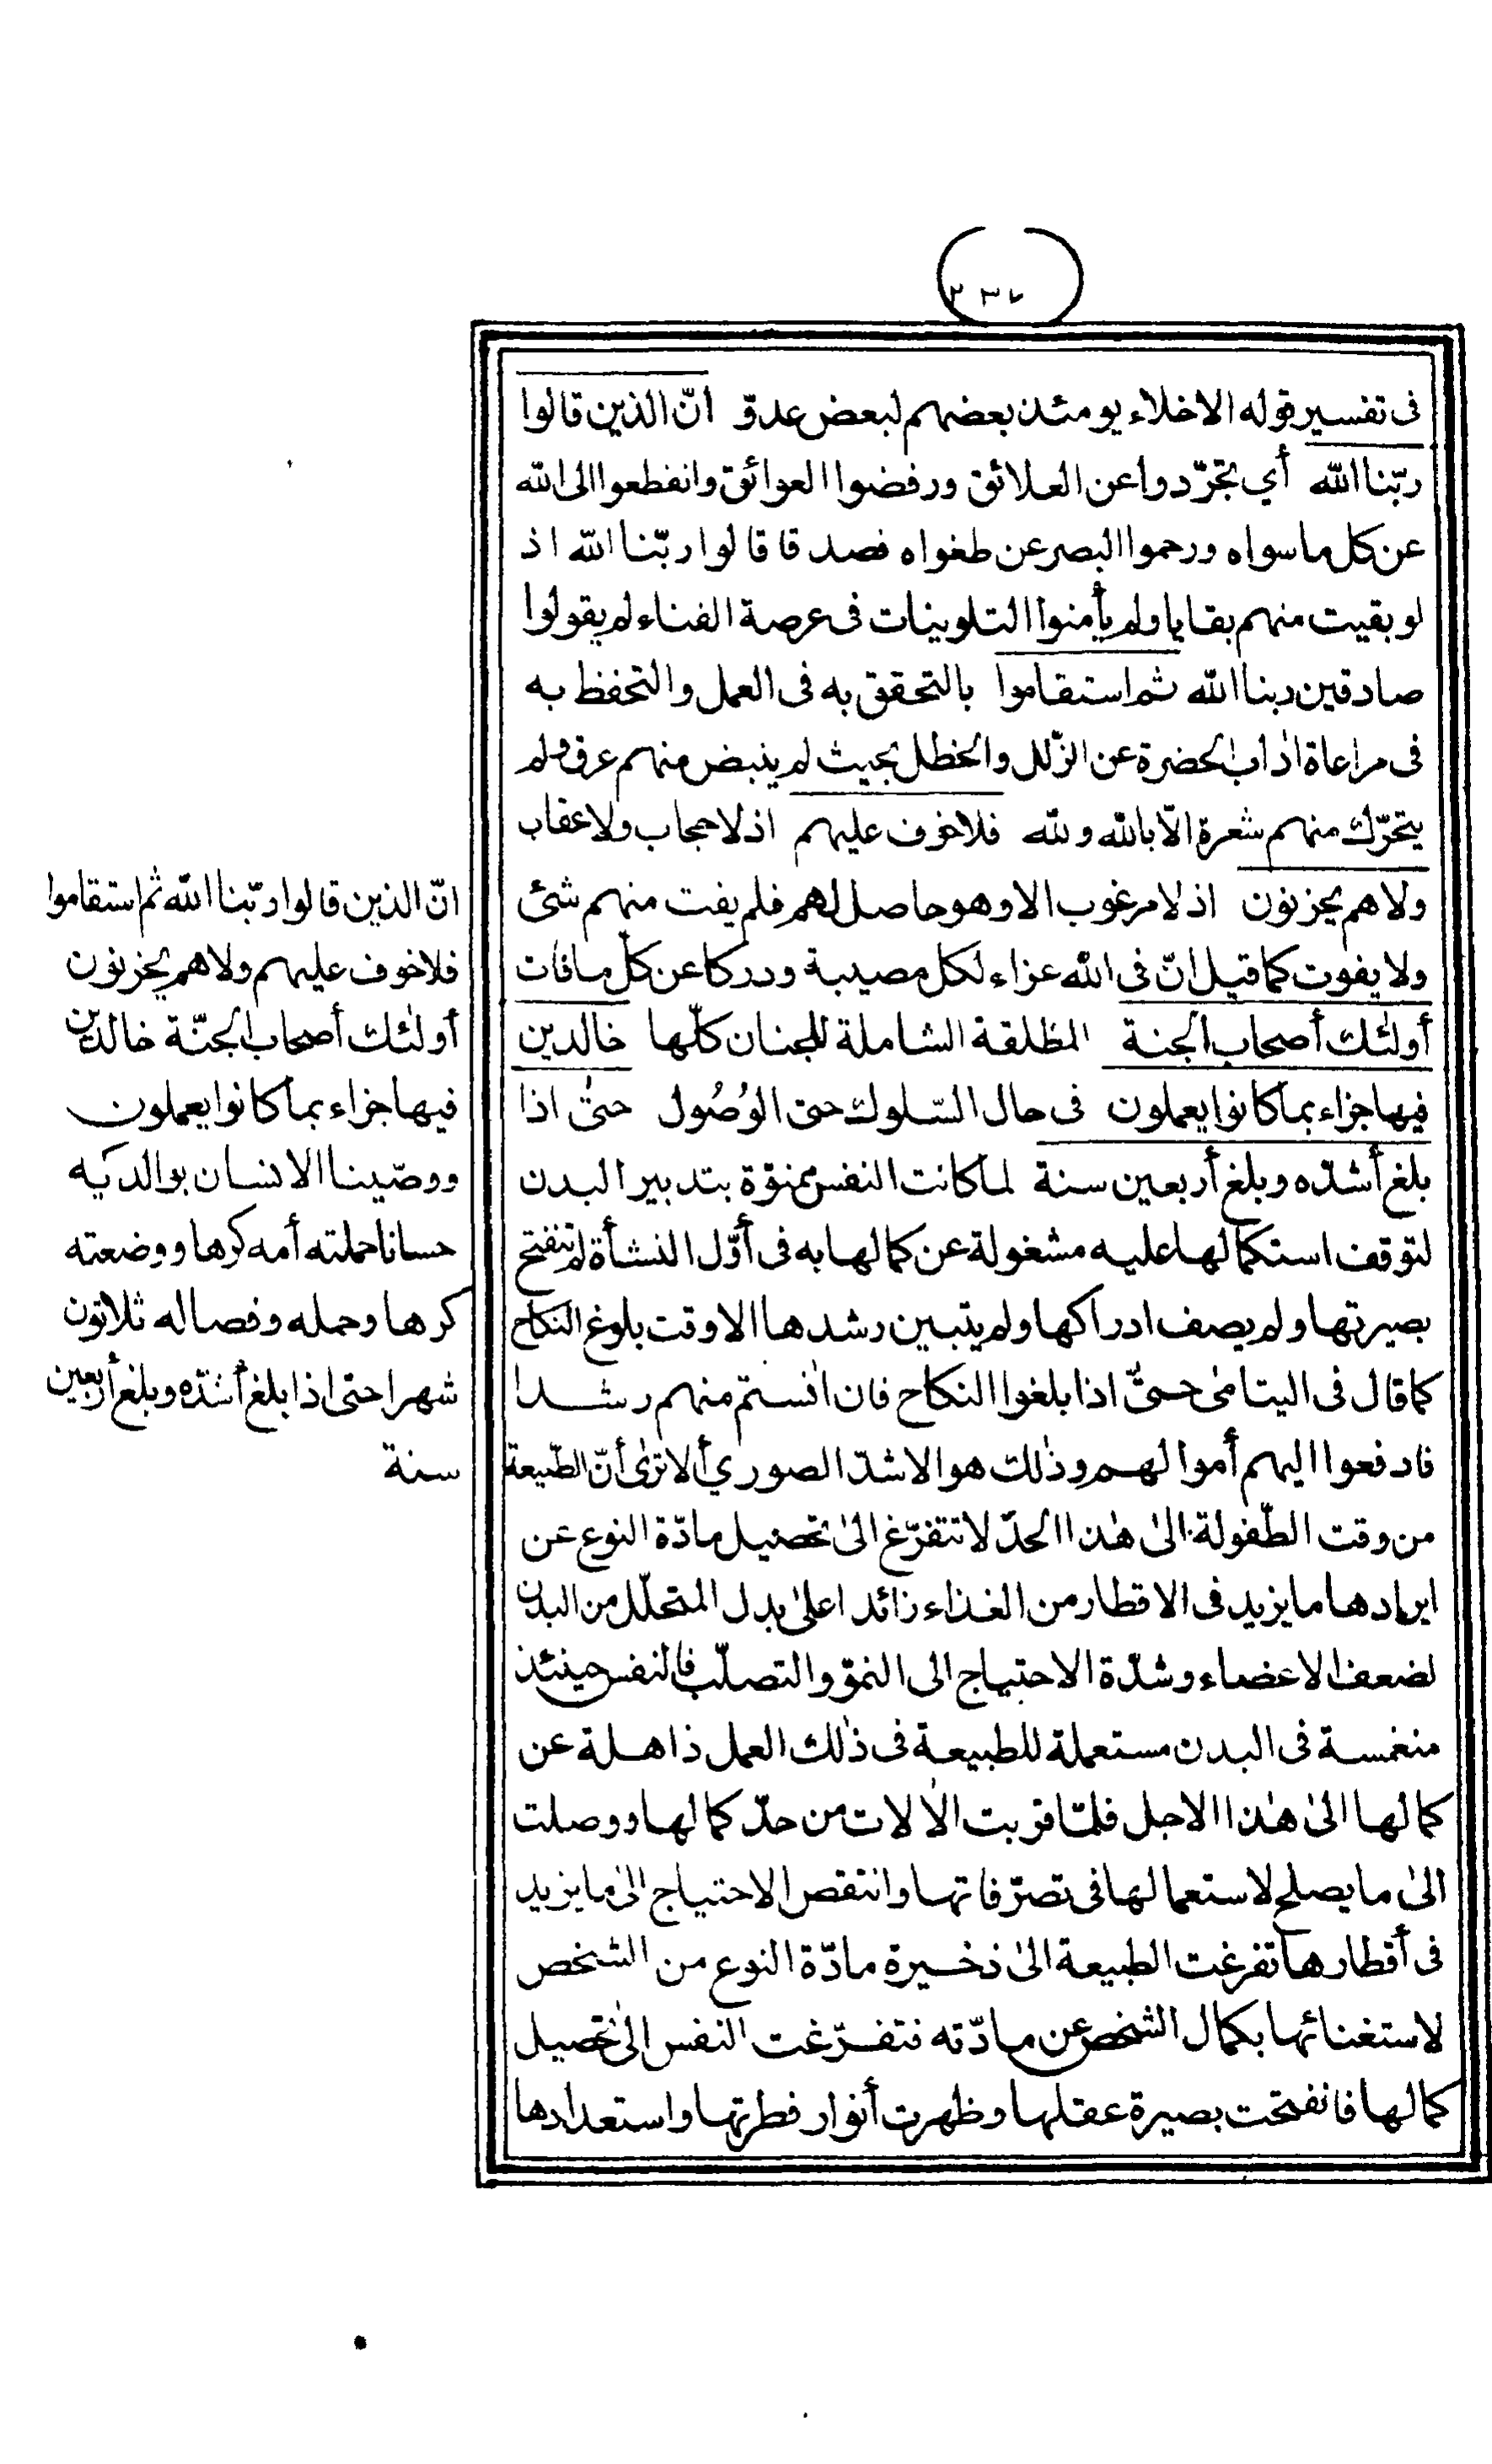 فى تفسير قوله الاخلاء يومئذ بعضهم لبعض عدوّ انّ الذين قالوا
ربّنا الله أي تجرّدوا عن العلائق ورفضوا العوائق وانقطعوا الى الله
عن كل ما سواه ورحموا البصر عن طغواه فصدقا قالوا ربّنا الله اذ
لو بقيت منهم بقايا ولم يأمنوا التلوينات فى عرصة الفناء لم يقولوا
صادقين ربنا الله ثم استقاموا بالتحقق به فى العمل والتحفظ به
فى مراعاة اٰداب الحضرة عن الزّلل والخطل بحيث لم ينبض منهم عرق ولم
يتحرّك منهم شعرة الاّ بالله ولله فلا خوف عليهم اذ لا حجاب ولا عقاب
ولا هم يحزنون اذ لا مرغوب الا وهو حاصل لهم فلم يفت منهم شئ
ولا يفوت كما قيل انّ فى الله عزاء لكل مصيبة ودركا عن كلّ ما فات
أولئك أصحاب الجنة المطلقة الشاملة للجنان كلّها خالدين
فيها جزاء بما كانوا يعملون فى حال السّلوك حتى الوُصُول حتىٰ اذا
بلغ أشدّه وبلغ أربعين سنة لما كانت النفس ممنوّة بتدبير البدن
لتوقف استكمالها عليه مشغولة عن كمالها به فى أوّل النشأة لم تنفتح
بصيرتها ولم يصف ادراكها ولم يتبين رشدها الا وقت بلوغ النكاح
كما قال فى اليتامىٰ حتىّٰ اذا بلغوا النكاح فان اٰنستم منهم رشدا
فادفعوا اليهم أموالهم وذٰلك هو الاشدّ الصوري ألا ترىٰ أنّ الطّبيعة
من وقت الطّفولة الىٰ هٰذا الحدّ لا تتفرّغ الىٰ تحصيل مادّة النوع عن
ايرادها ما يزيد فى الاقطار من الغذاء زائدا علىٰ بدل المتحلّل من البدن
لضعف الاعضاء وشدّة الاحتياج الى النموّ والتصلّب فالنفس حينئذ
منغمسة فى البدن مستعملة للطبيعة فى ذٰلك العمل ذاهلة عن
كمالها الىٰ هٰذا الاجل فلمّا قربت الاٰلات من حدّ كمالها ووصلت
الىٰ ما يصلح لاستعمالها فى تصرّفاتها وانتقص الاحتياج الىٰ ما يزيد
فى أقطارها تفرغت الطبيعة الىٰ ذخيرة مادّة النوع من الشخص
لاستغنائها بكمال الشخص عن مادّته فتفرّغت النفس الىٰ تحصيل
كمالها فانفتحت بصيرة عقلها وظهرت أنوار فطرتها واستعدادها
انّ الذين قالوا ربّنا الله ثم استقاموا
فلا خوف عليهم ولا هم يحزنون
أولٰئك أصحاب الجنّة خالدين
فيها جزاء بما كانوا يعملون
ووصّينا الانسان بوالديه
حسانا حملته أمه كرها ووضعته
كرها وحمله وفصاله ثلاثون
شهرا حتى اذا بلغ أشدّه وبلغ أربعين
سنة